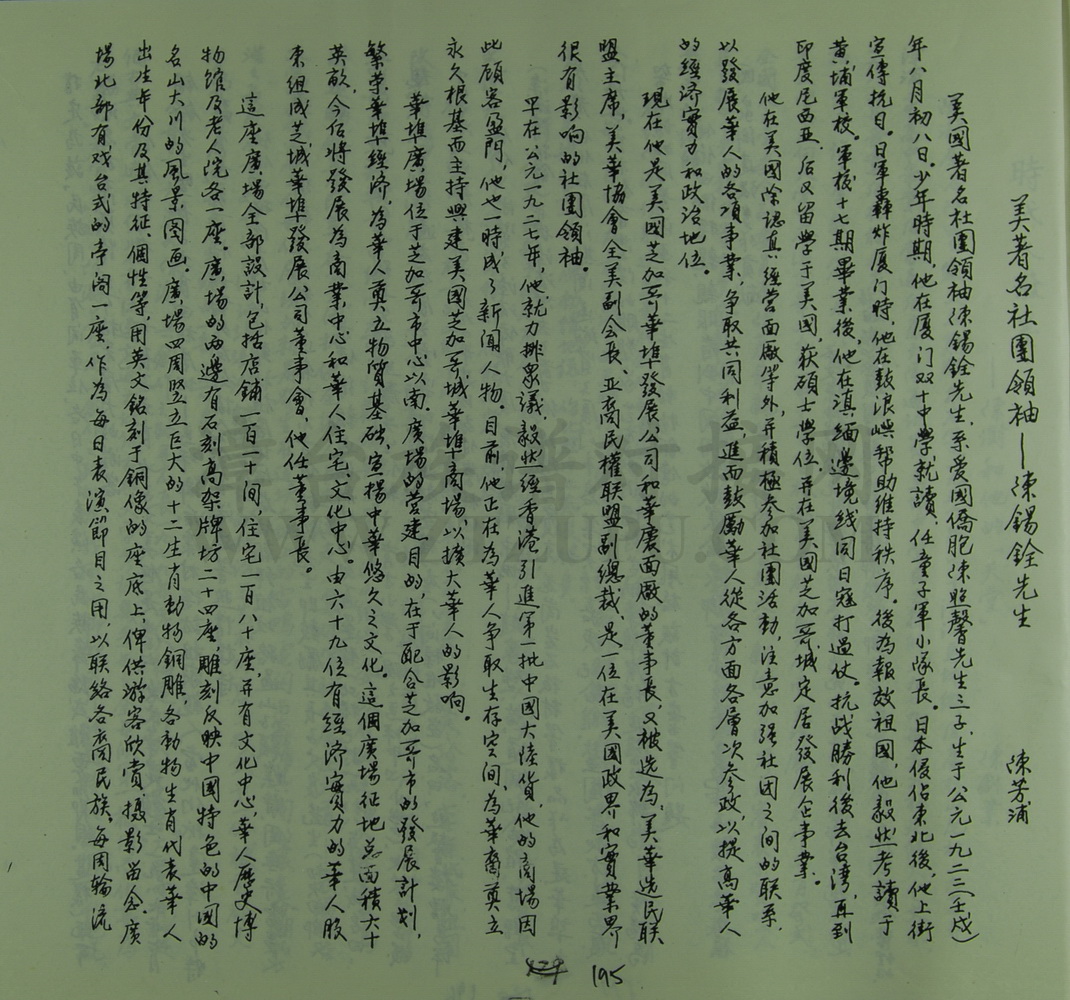 美著名社團領袖—陳錫銓先生
陳芳浦
美國著名社團領袖陳錫銓先生，系爱國僑胞陳照馨先生三子，生于公元一九二二(壬戍)
年八月初八日。少年時期，他在厦门双十中學就讀，任童子軍小隊長。日本侵佔東北後，他上街
宣傳抗日。日軍轟炸厦门時，他在鼓浪嶼帮助維持秩序。後為報效祖國，他毅然考讀于
黄埔軍校。軍校十七期畢業後，他在滇緬邊境线同日寇打過仗。抗战勝利後去台湾，再到
印度尼西亚，后又留學于美國，获碩士學位，并在美國芝加哥城定居發展企事業。
他在美國除認真經营面廠等外，并積極参加社團活動，注意加强社团之间的联系，
以發展華人的各項事業，争取共同利益，進而鼓勵華人從各方面各層次参政，以提高華人
的經济實力和政治地位。
現在他是美國芝加哥華埠發展公司和華慶面廠的董事長，又被选為，美華选民联
盟主席，美華協會全美副会長、亚裔民權联盟副總裁，是一位在美國政界和實業界
很有影响的社團領袖。
早在公元一九二七年，他就力排眾議，毅然經香港引進第一批中國大陸貨，他的商場因
此顾客盈門，他也一時成了新闻人物。目前，他正在為華人争取生存空间，為華裔奠立
永久根基而主持興建美國芝加哥城華埠商場，以擴大華人的影响。
華埠廣場位于芝加哥市中心以南。廣場的营建目的，在于配合芝加哥市的發展計划，
繁荣華埠經济，為華人奠立物質基础，宣揚中華悠久之文化。這個廣場征地总面積六十
英畝，今后將發展為商業中心和華人住宅、文化中心。由六十九位有經济實力的華人股
東组成芝城華埠發展公司董事會，他任董事長。
這座廣場全部設計，包括店鋪一百一十间，住宅一百八十座，并有文化中心，華人歷史博
物館及老人院各一座。廣場的两邊有石刻高架牌坊二十四座，雕刻反映中國特色的中國的
名山大川的風景图画。廣場四周竖立巨大的十二生肖動物銅雕，各動物生肖代表華人
出生年份及其特征、個性等，用英文銘刻于銅像的座底上，俾供游客欣赏、摄影留念。廣
場北部有戏台式的亭阁一座，作為每日表演節目之用，以联絡各裔民族。每周輪流
195